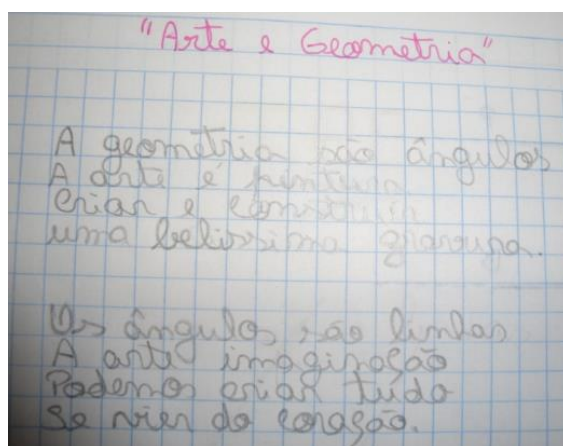 "Arte e Geometria"
A geometria são ângulos
A arte é pintura
Criar e construir
uma belissima gravura.
Os ângulos são lindos
A arte imaginação
Podemos criar tudo
Se vier do coração.